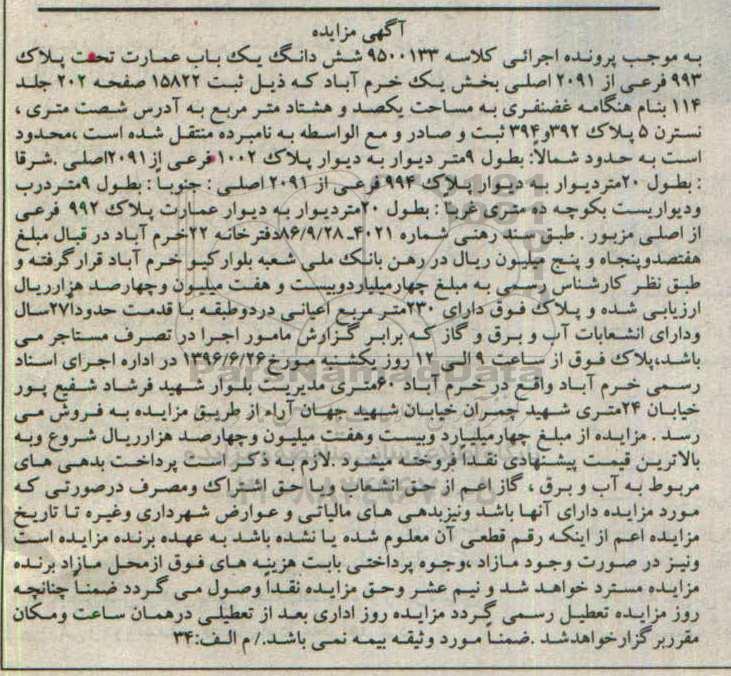 آگهی مزایده
به موجب پرونده اجرائی کلاسه ۹۵۰۰۱۳۳ شش دانگ یک باب عمارت تحت پلاک
۹۹۳ فرعی از ۲۰۹۱ اصلی بخش یک خرم آباد که ذیل ثبت ۱۵۸۲۲ صفحه ۲۰۲ جلد
۱۱۴ بنام هنگامه غضنفری به مساحت یکصد و هشتاد متر مربع به آدرس شصت متری ،
نسترن ۵ پلاک ۳۹۲و۳۹۴ ثبت و صادر و مع الواسطه به نامبرده منتقل شده است ،محدود
است به حدود شمالاً: بطول ۹متر دیوار به دیوار پلاک ۱۰۰۲ فرعی از۲۰۹۱اصلی .شرقا
: بطول ۲۰متردیوار به دیوار پلاک ۹۹۴ فرعی از ۲۰۹۱ اصلی : جنوبا : بطول ۹متردرب
ودیواریست بکوچه ده متری غربا : بطول ۲۰متردیوار به دیوار عمارت پلاک ۹۹۲ فرعی
از اصلی مزبور . طبق سند رهنی شماره ۴۰۲۱ـ۸۶/۹/۲۸دفترخانه ۲۲خرم آباد در قبال مبلغ
هفتصدوپنجاه و پنج میلیون ریال در رهن بانک ملی شعبه بلوارکیو خرم آباد قرارگرفته و
طبق نظر کارشناس رسمی به مبلغ چهارمیلیاردوبیست و هفت میلیون وچهارصد هزارریال
ارزیابی شده و پلاک فوق دارای ۲۳۰متر مربع اعیانی دردوطبقه با قدمت حدودا۲۷سال
ودارای انشعابات آب و برق و گاز که برابر گزارش مامور اجرا در تصرف مستاجر می
باشد،پلاک فوق از ساعت ۹ الی ۱۲ روز یکشنبه مورخ ۱۳۹۶/۶/۲۶ در اداره اجرای اسناد
رسمی خرم آباد واقع در خرم آباد ۶۰متری مدیریت بلوار شهید فرشاد شفیع پور
خیابان ۲۴متری شهید چمران خیابان شهید جهان آراء از طریق مزایده به فروش می
رسد . مزایده از مبلغ چهارمیلیارد وبیست وهفت میلیون وچهارصد هزارریال شروع وبه
بالاترین قیمت پیشنهادی نقدا فروخته میشود .لازم به ذکر است پرداخت بدهی های
مربوط به آب و برق ، گاز اعم از حق انشعاب ویا حق اشتراک ومصرف درصورتی که
مورد مزایده دارای آنها باشد ونیزبدهی های مالیاتی و عوارض شهرداری وغیره تا تاریخ
مزایده اعم از اینکه رقم قطعی آن معلوم شده یا نشده باشد به عهده برنده مزایده است
ونیز در صورت وجود مازاد ،وجوه پرداختی بابت هزینه های فوق ازمحل مازاد برنده
مزایده مسترد خواهد شد و نیم عشر وحق مزایده نقدا وصول می گردد ضمناً چنانچه
روز مزایده تعطیل رسمی گردد مزایده روز اداری بعد از تعطیلی درهمان ساعت ومکان
مقرربرگزارخواهدشد .ضمناً مورد وثیقه بیمه نمی باشد./ م الف:۳۴
ParsNamadData